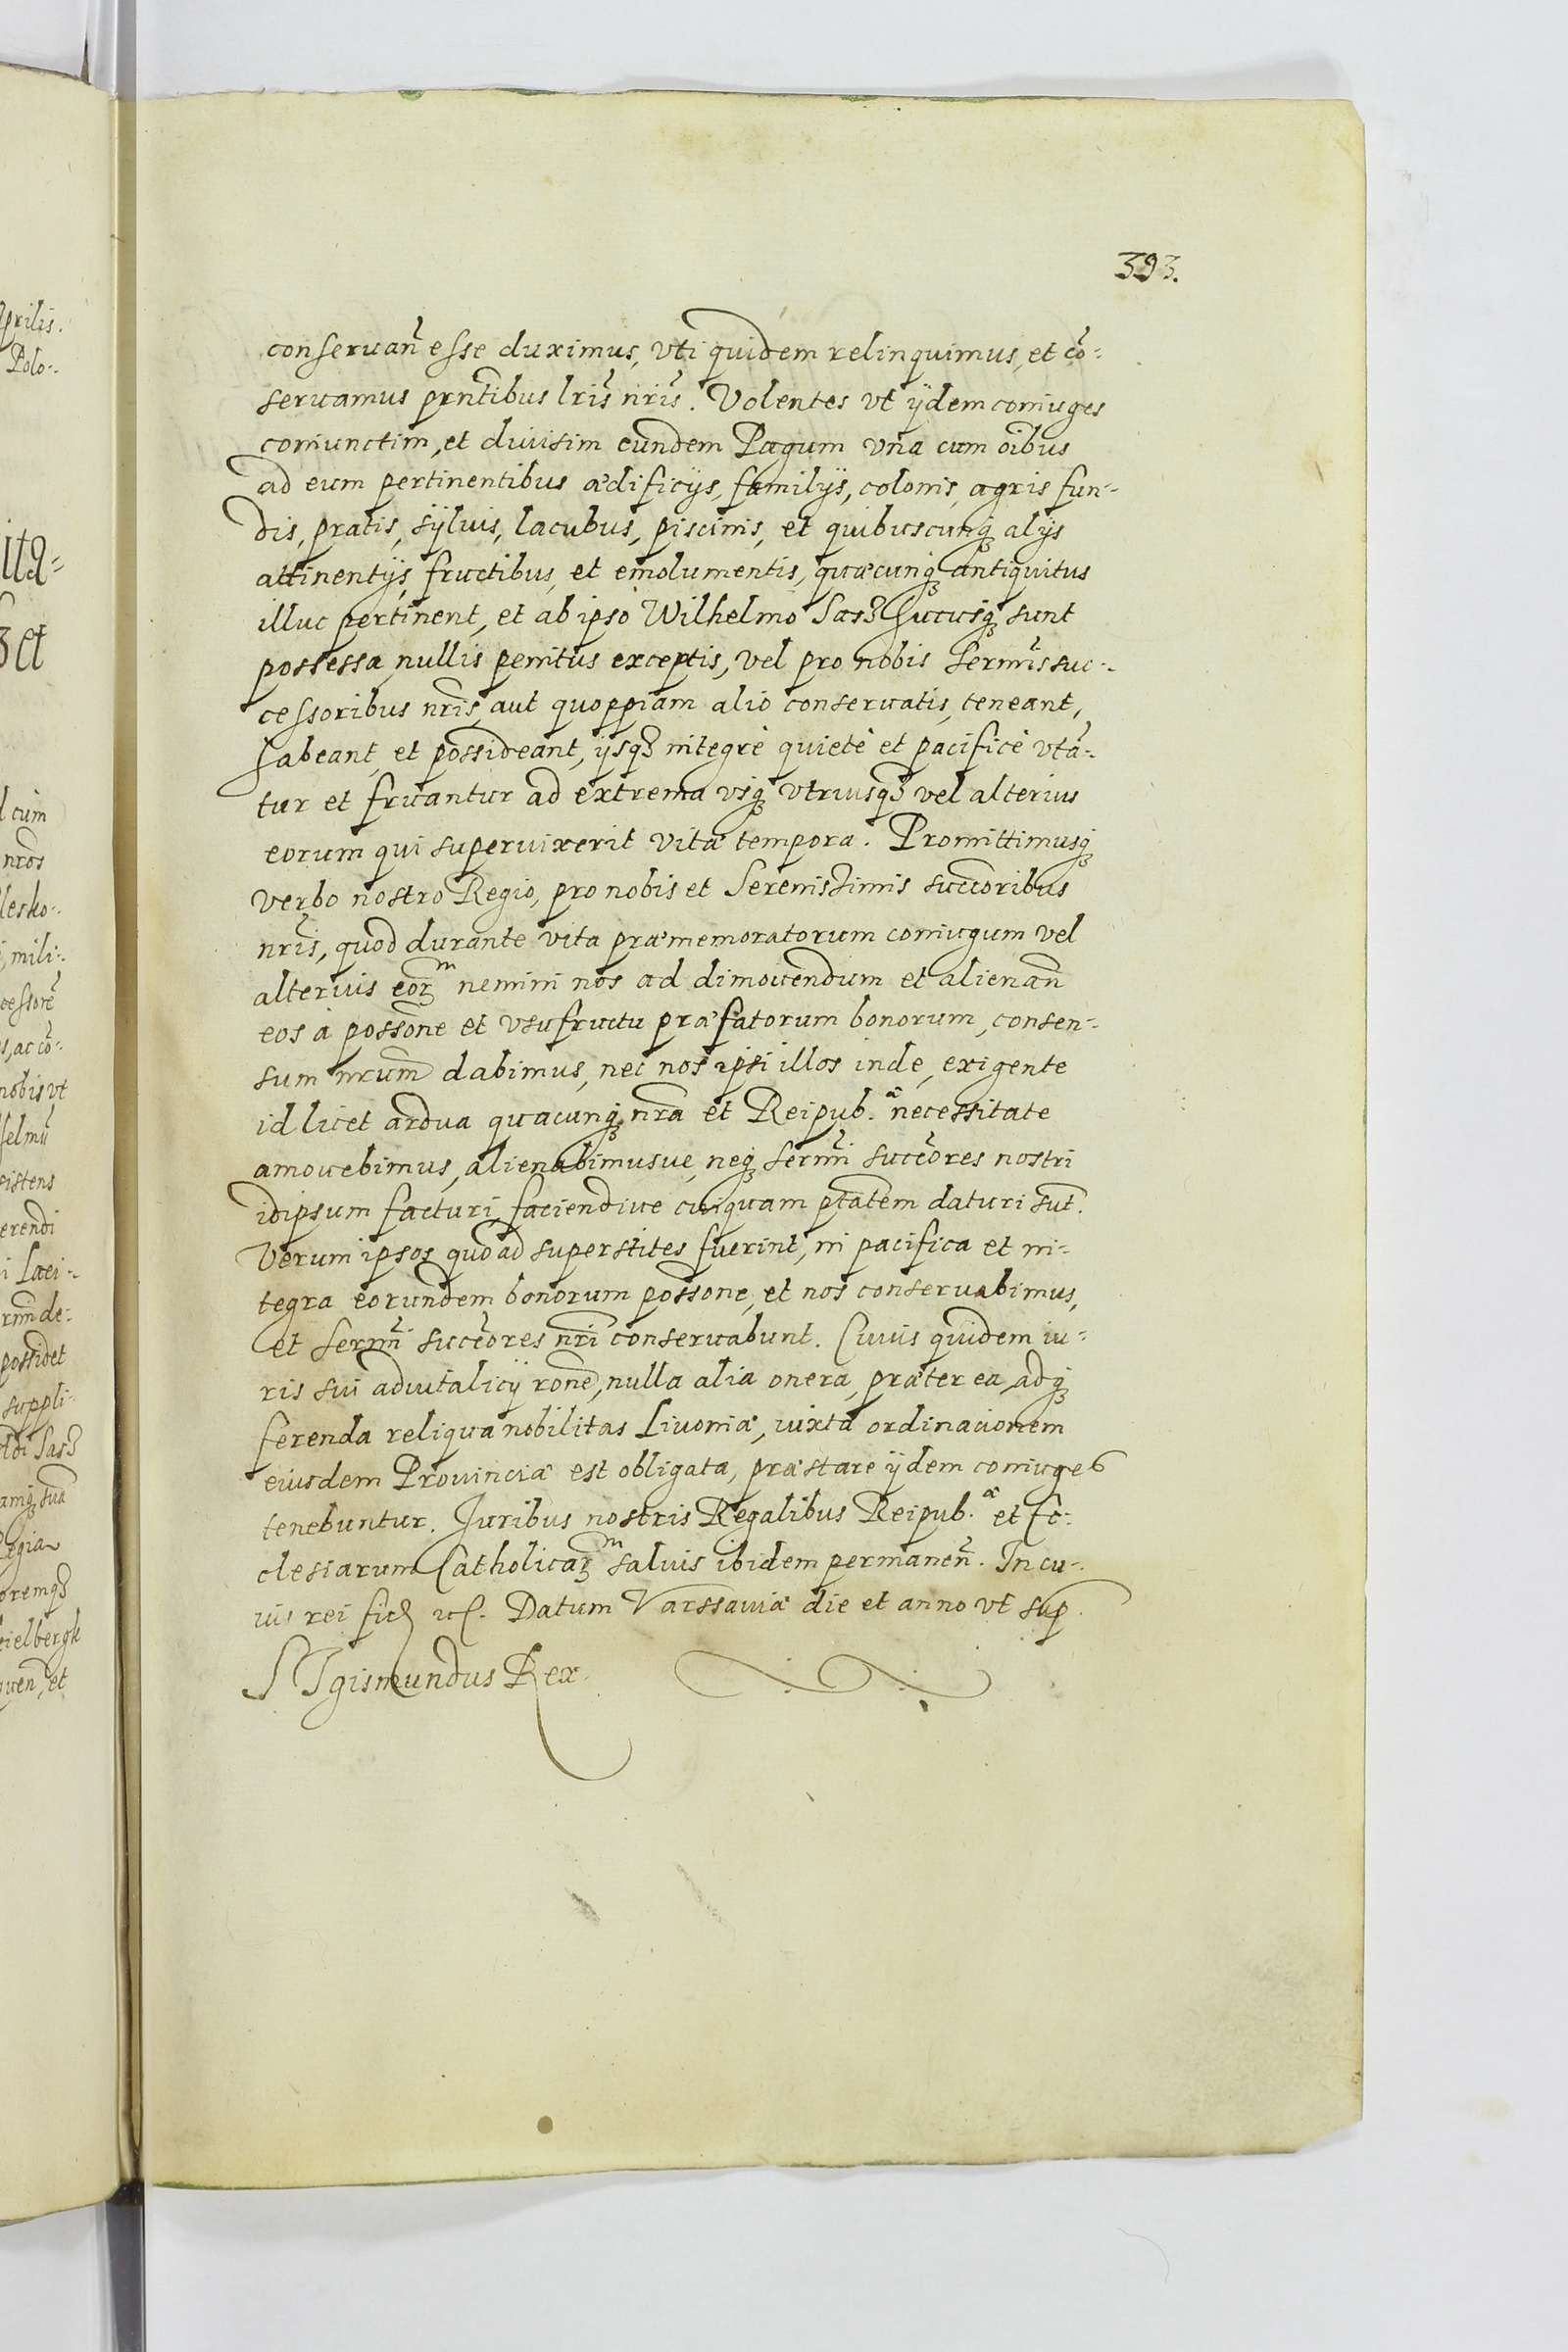 393.
conseruan̄ esse duximus, vti quidem relinquimus, et cō-
seruamus prn̄tibus lris nris. Volentes vt ijdem coniuges
coniunctim, et diuisim eundem Pagum vna cum oibus
ad eum pertinentibus ædificijs, familijs, colonis, agris fun-
dis, pratis, sÿluis, lacubus, piscinis, et quibuscunq₃ alijs
attinentijs, fructibus, et emolumentis, quæcunq₃ antiquitus
illuc pertinent, et ab ipso Wilhelmo Sass hucusq₃ sunt
possessa, nullis penitus exceptis, vel pro nobis Sermis suc-
cessoribus nris, aut quoppiam alio conseruatis, teneant,
habeant, et possideant, ijsq₃ integrè quietè et pacificè vtā-
tur et fruantur ad extrema vsq₃ vtriusq₃ vel alterius
eorum qui superuixerit vitæ tempora. Promittimusq₃
verbo nostro Regio, pro nobis et Serenissimis succoribus
nris, quod durante vita præmemoratorum coniugum vel
alterius eor₃ᵐ nemini nos ad dimouendum et alienan̄
eos à possone et vsufructu præfatorum bonorum, consen-
sum nrum dabimus, nec nos ipsi illos inde, exigente
id licet ardua quacunq₃ nra et Reipub.ᵃᵉ necessitate
amouebimus, alienabimusue, neq₃ sermi succores nostri
idipsum facturi, faciendiue cuiquam ptatem daturi sut.
Verum ipsos quoad superstites fuerint, in pacifica et in-
tegra eorundem bonorum possone, et nos conseruabimus,
et sermi succores nri conseruabunt. Cuius quidem iu-
ris sui aduitalicij rone, nulla alia onera, præter ea, ad q₃
ferenda reliqua nobilitas Liuoniæ, iuxta ordinacionem
eiusdem Prouinciæ est obligata, præstare ijdem coniuges
tenebuntur. Juribus nostris Regalibus Reipub.ᵃᵉ et Ec-
clesiarum Catholicar₃ᵐ saluis ibidem permanen̄. In cu-
ius rei fid etc. Datum Varssauiæ die et anno vt sup.
SIgismundus Rex.
prilis.
Polo-
ita-
et
cum
nros
lesko-
mili-
cessorē
s, ac cō-
nobis vt
helmū
sistens
erendi
i Laci-
possidet
suppli-
Sass
amq₃ suā
egia
oremq₃
ielbergk
quen, et